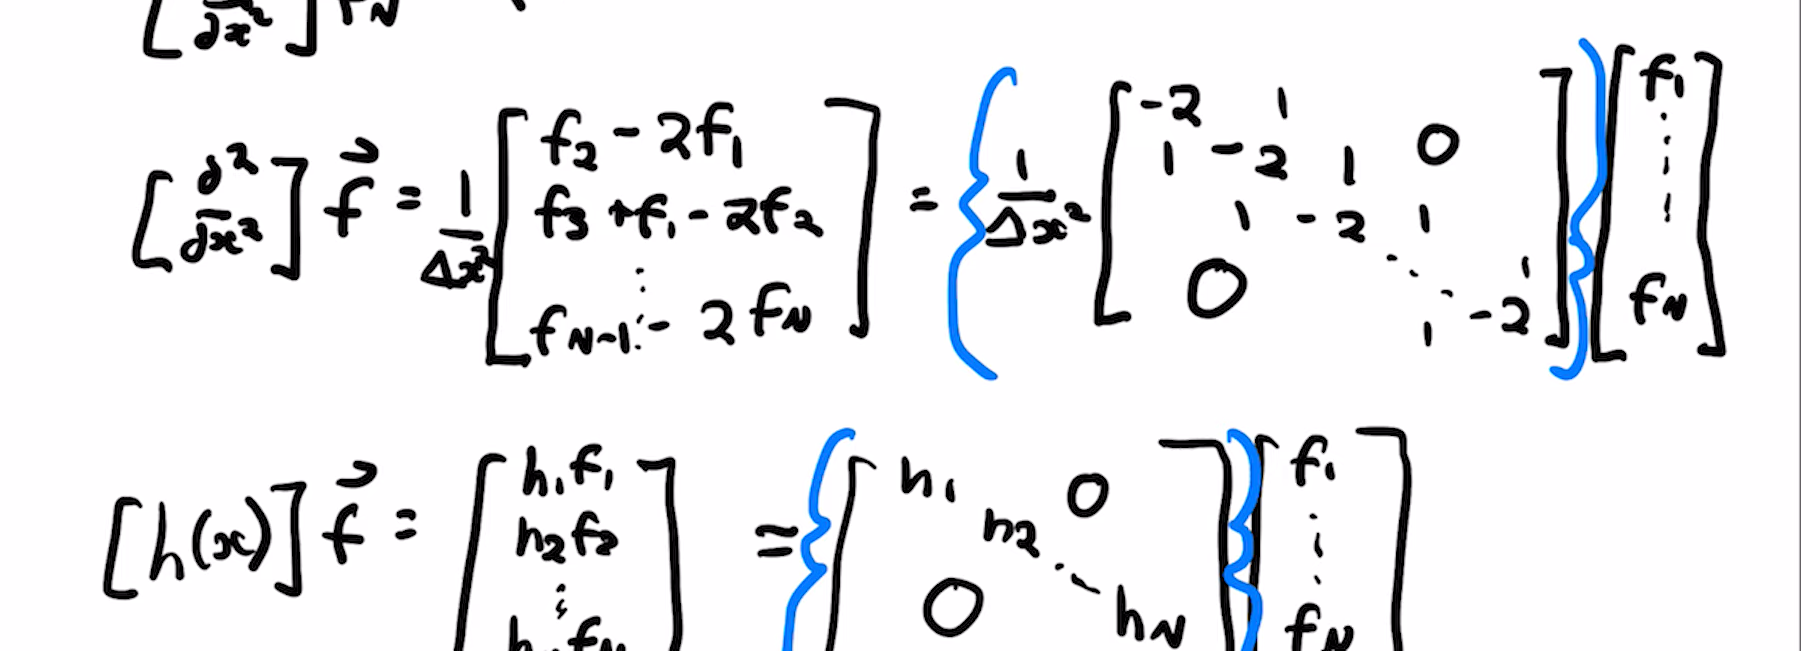 [∂/∂x²] f_N
[∂²/∂x²] f⃗ = 1/Δx² [f₂ - 2f₁; f₃ + f₁ - 2f₂; ⋮; f_{N-1} - 2f_N] = {1/Δx² [-2 1 0; 1 -2 1; 1 -2 1; 0 ⋱ 1; 1 -2]} [f₁; ⋮; f_N]
[h(x)] f⃗ = [h₁f₁; h₂f₂; ⋮; h_N f_N] = {[h₁ 0; h₂; ⋱; 0 h_N]} [f₁; ⋮; f_N]